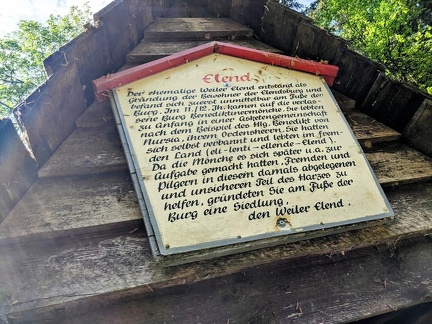 Elend
Der ehemalige Weiler Elend entstand als
Gründung der Bewohner der Elendsburg und
befand sich zuerst unmittelbar am Fuße der
Burg. Im 11./12. Jh. kamen auf die verlas-
sene Burg Benediktinermönche. Sie lebten
zu Anfang in einer Asketengemeinschaft
nach dem Beispiel des Hlg. Benedikt von
Nursia, ihrem Ordensherren. Sie hatten
sich selbst verbannt und lebten im frem-
den Land (eli-lenti-ellende-Elend).
Da die Mönche es sich später u.a. zur
Aufgabe gemacht hatten, Fremden und
Pilgern in diesem damals abgelegenen
und unsicheren Teil des Harzes zu
helfen, gründeten Sie am Fuße der
Burg eine Siedlung,
den Weiler Elend.